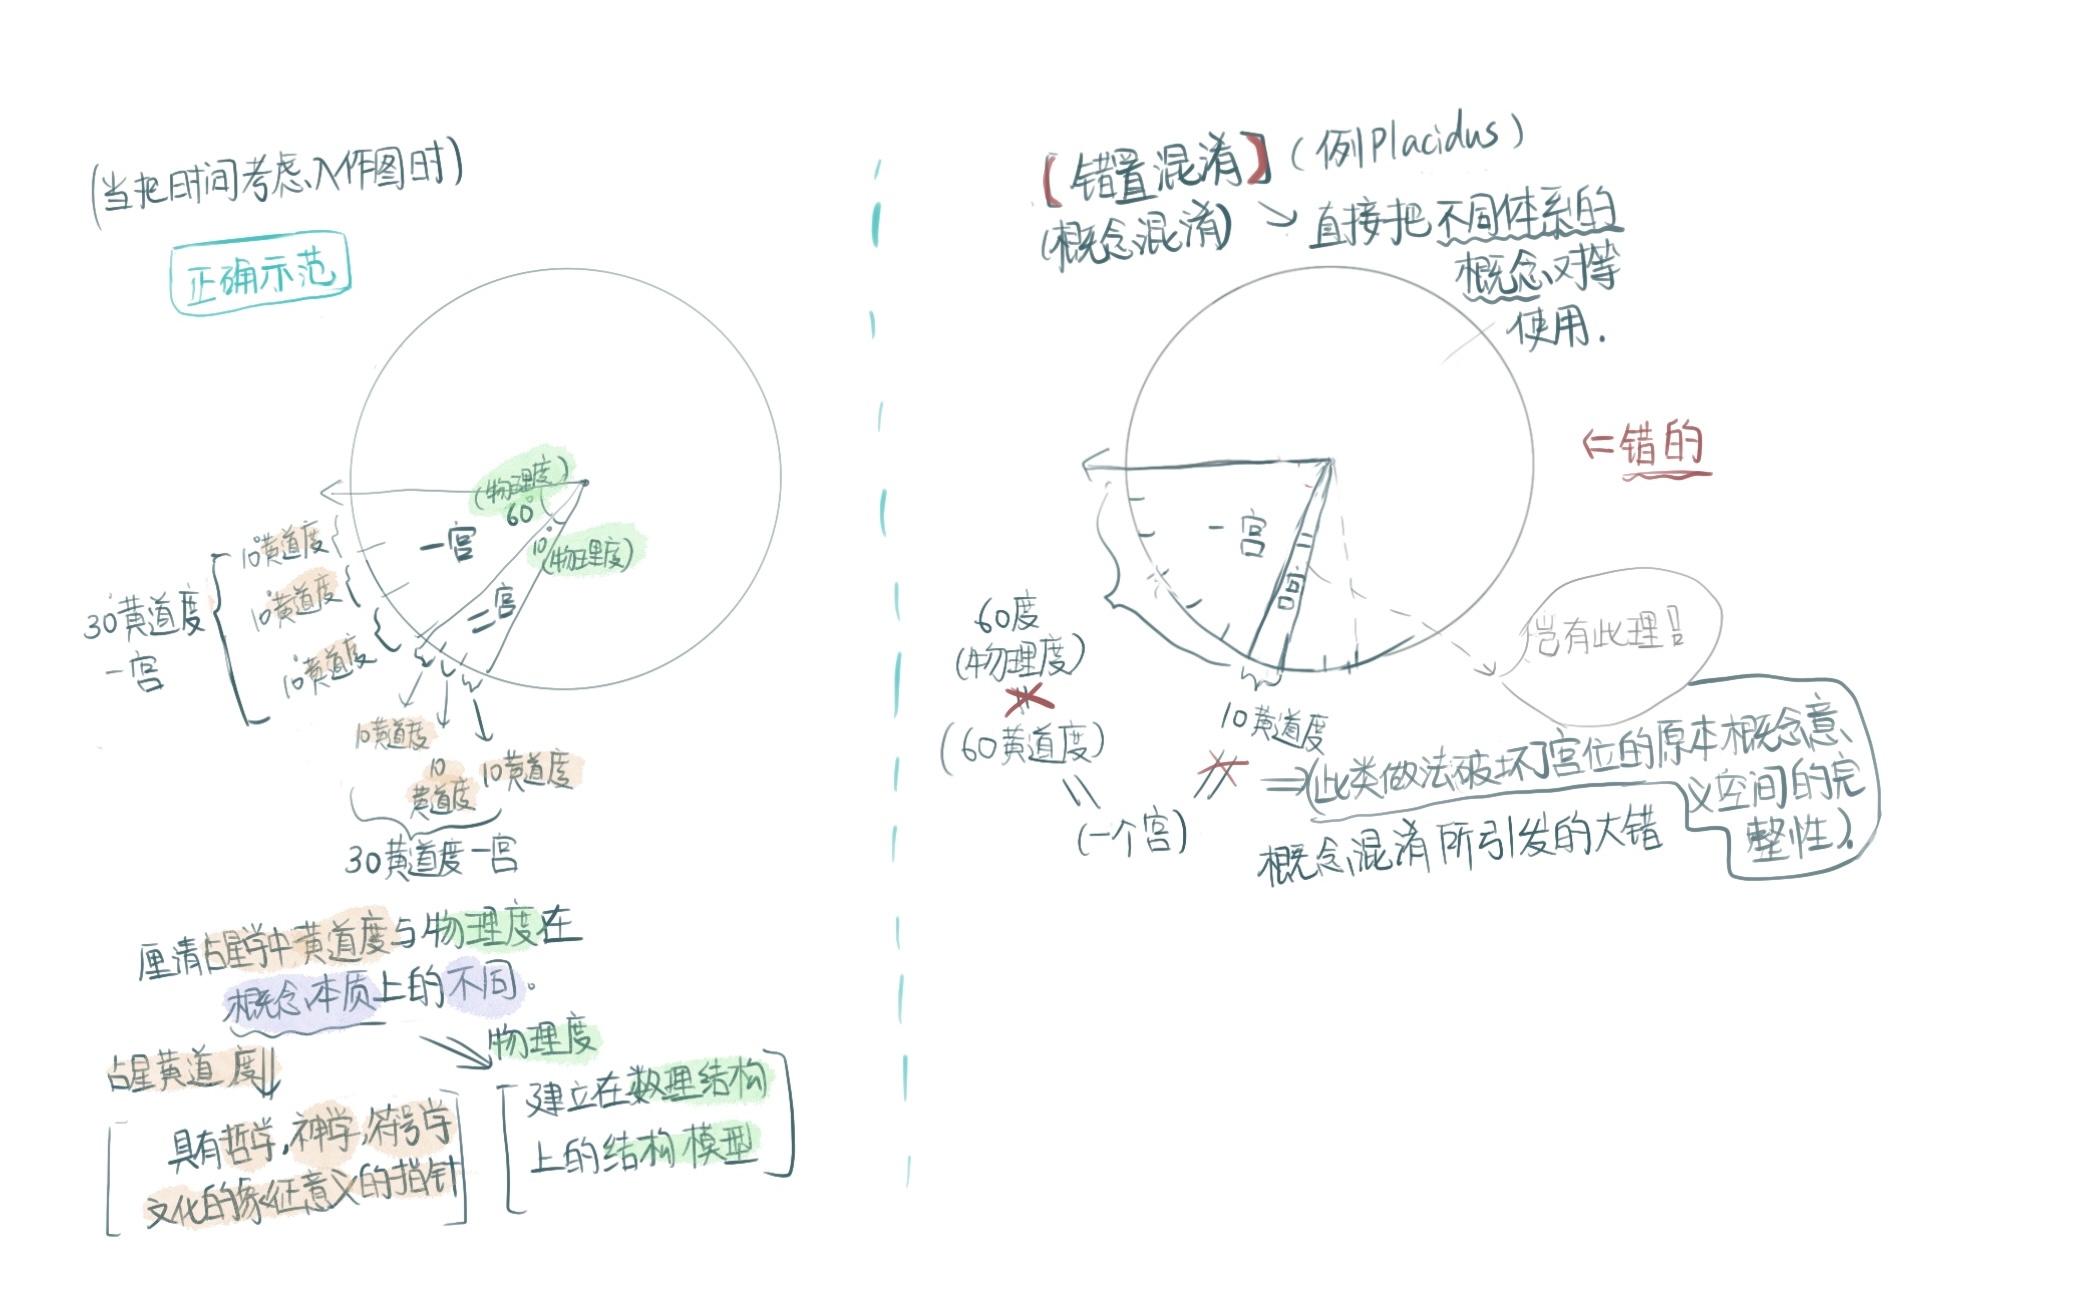 (当把时间考虑入作图时)
正确示范
(物理度)
60°
10°
(物理度)
一宫
二宫
10°黄道度
10°黄道度
10°黄道度
30黄道度
一宫
10黄道度
10
黄道度
10黄道度
30黄道度一宫
厘清占星学中黄道度与物理度在
概念本质上的不同。
占星黄道度
具有哲学,神学,符号学
文化的象征意义的指针
物理度
建立在数理结构
上的结构模型
【错置混淆】(例Placidus)
(概念混淆)
直接把不同体系的
概念对等
使用.
⇐错的
一宫
二宫
60度
(物理度)
(60黄道度)
(一个宫)
10黄道度
岂有此理!!
⇒(此类做法破坏了宫位的原本概念意
义空间的完
整性).
概念混淆所引发的大错